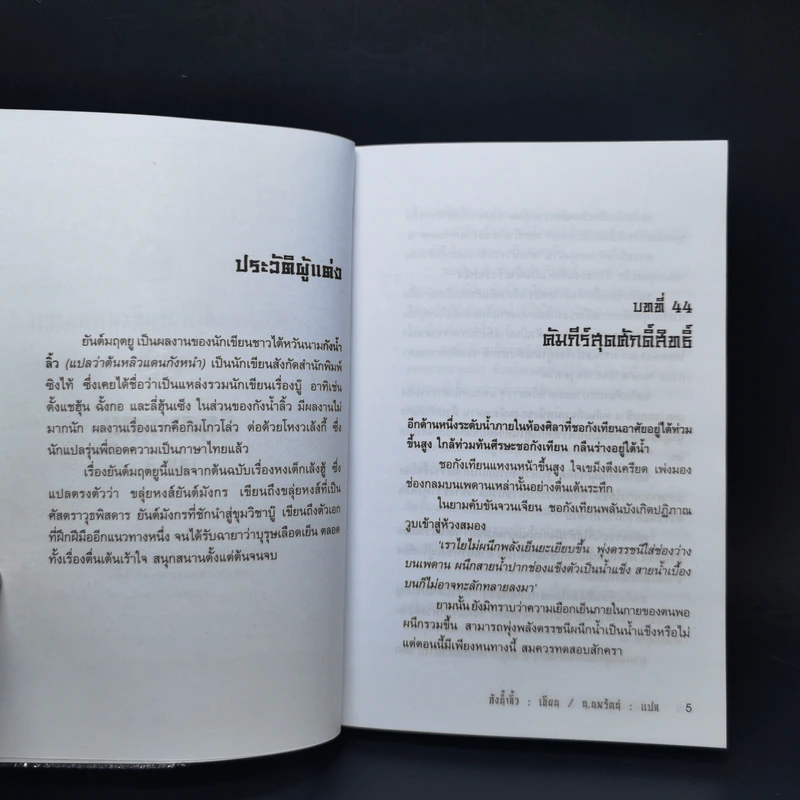 ประวัติผู้แต่ง
ยันต์มฤตยู เป็นผลงานของนักเขียนชาวไต้หวันนามกังน้ำ
ลิ้ว (แปลว่าต้นหลิวแดนกังหนำ) เป็นนักเขียนสังกัดสำนักพิมพ์
ชิงไห้ ซึ่งเคยได้ชื่อว่าเป็นแหล่งรวมนักเขียนเรื่องบู๊ อาทิเช่น
ตั้งแชฮุ้น ฉั้งกอ และลี่ฮุ้นเซ็ง ในส่วนของกังน้ำลิ้ว มีผลงานไม่
มากนัก ผลงานเรื่องแรกคือกิมโกวโล่ว ต่อด้วยโหงวเล้งกี้ ซึ่ง
นักแปลรุ่นพี่ถอดความเป็นภาษาไทยแล้ว
เรื่องยันต์มฤตยูนี้แปลจากต้นฉบับเรื่องหงเต็กเล้งฮู้ ซึ่ง
แปลตรงตัวว่า ขลุ่ยหงส์ยันต์มังกร เขียนถึงขลุ่ยหงส์ที่เป็น
ศัสตราวุธพิสดาร ยันต์มังกรที่ชักนำสู่ขุมวิชาบู๊ เขียนถึงตัวเอก
ที่ฝึกฝีมืออีกแนวทางหนึ่ง จนได้รับฉายาว่าบุรุษเลือดเย็น ตลอด
ทั้งเรื่องตื่นเต้นเร้าใจ สนุกสนานตั้งแต่ต้นจนจบ
บทที่ 44
คัมภีร์สุดศักดิ์สิทธิ์
อีกด้านหนึ่งระดับน้ำภายในห้องศิลาที่ซอกังเทียนอาศัยอยู่ได้ท่วม
ขึ้นสูง ใกล้ท่วมทันศีรษะซอกังเทียน กลืนร่างอยู่ใต้น้ำ
ซอกังเทียนแหงนหน้าขึ้นสูง ใจเขม็งตึงเครียด เพ่งมอง
ช่องกลมบนเพดานเหล่านั้นอย่างตื่นเต้นระทึก
ในยามคับขันจวนเจียน ซอกังเทียนพลันบังเกิดปฏิภาณ
วูบเข้าสู่ห้วงสมอง
'เราไยไม่ผนึกพลังเย็นยะเยียบขึ้น พุ่งดรรชนีใส่ช่องว่าง
บนเพดาน ผนึกสายน้ำปากช่องแข็งตัวเป็นน้ำแข็ง สายน้ำเบื้อง
บนก็ไม่อาจทะลักทลายลงมา'
ยามนั้นยังมิทราบว่าความเยือกเย็นภายในกายของตนพอ
ผนึกรวมขึ้น สามารถพุ่งพลังดรรชนีผนึกน้ำเป็นน้ำแข็งหรือไม่
แต่ตอนนี้มีเพียงหนทางนี้ สมควรทดสอบสักครา
กังน้ำลิ้ว : เขียน / ถ.ถมรัตน์ : แปล 5